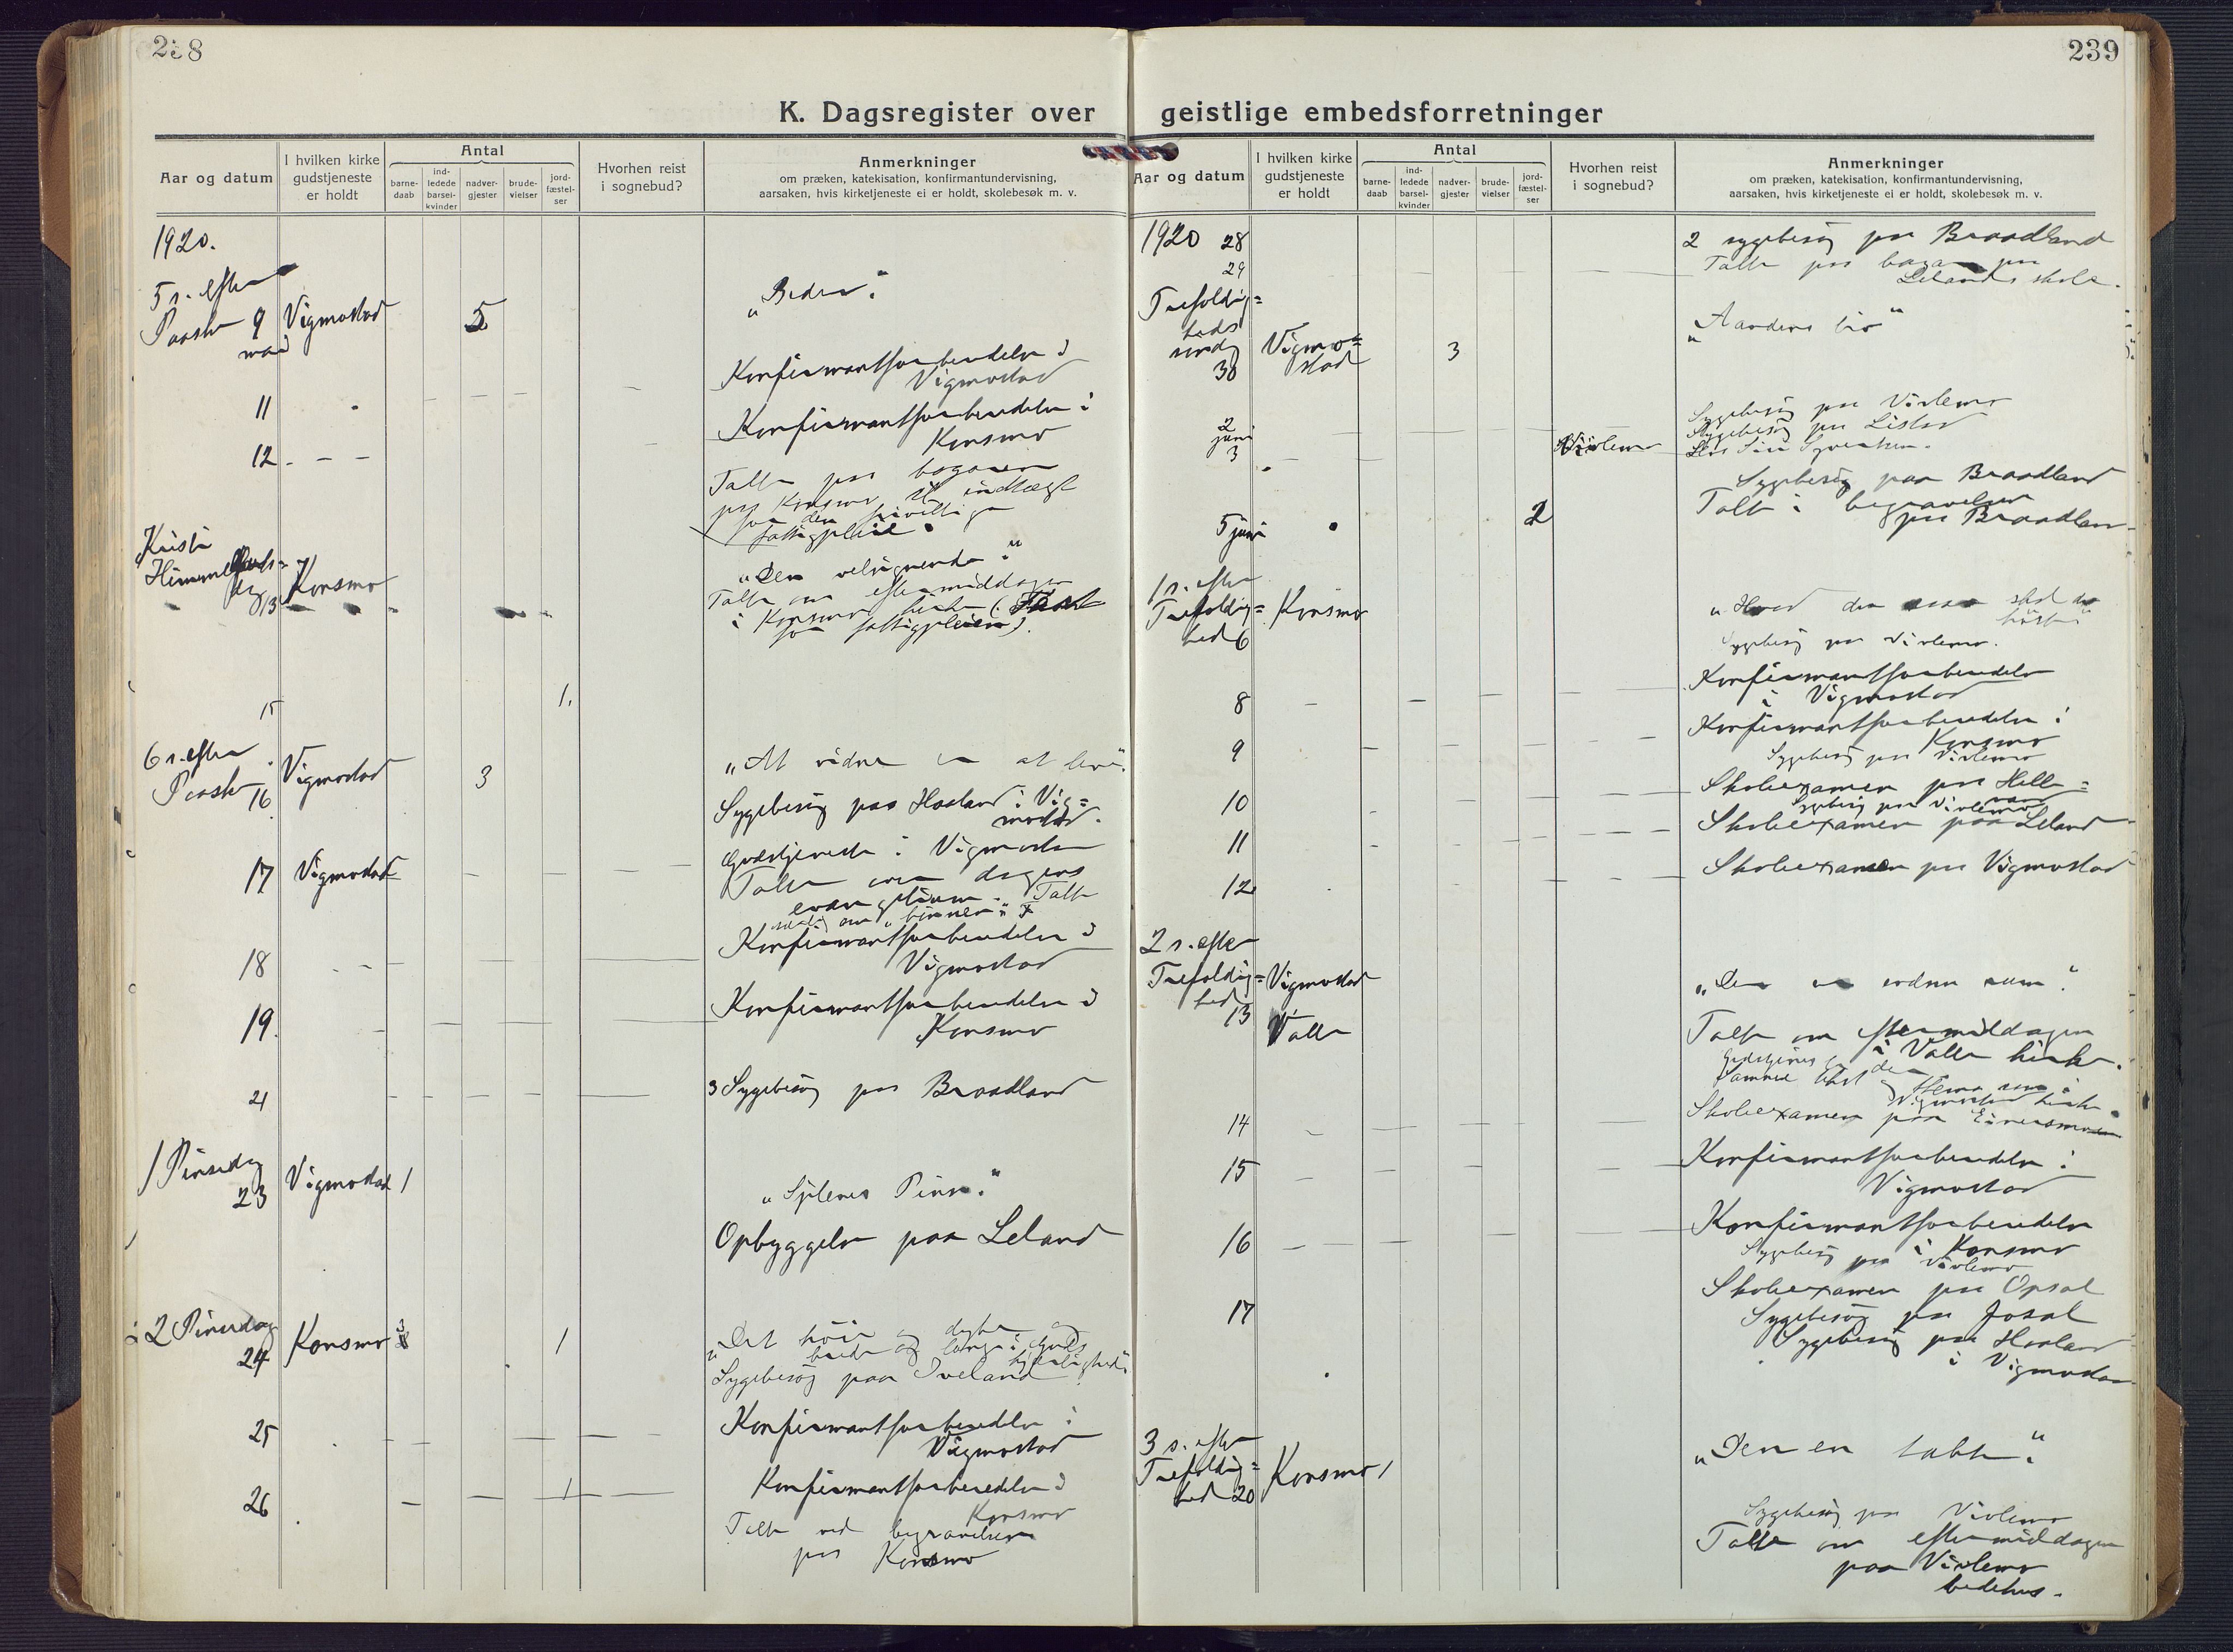 238
K. Dagsregister over
Aar og datum
I hvilken kirke
gudstjeneste
er holdt
Antal
barne-
daab
ind-
ledede
barsel-
kvinder
nadver-
gjester
brude-
vielser
jord-
fæstel-
ser
Hvorhen reist
i sognebud?
Anmerkninger
om præken, katekisation, konfirmantundervisning,
aarsaken, hvis kirketjeneste ei er holdt, skolebesøk m. v.
1920.
5 s. efter
Paaske 9 Vigmostad 5 „Beden."
mai
11 Konfirmantforberedelse i
Vigmostad
12 Konfirmantforberedelse i
Konsmo
Talte paa basaren
paa Konsmo til indtægt
for den frivillige
fattigpleie.
Kristi
Himmelfarts=
dag 13 Konsmo „Den velsignende."
Talte om eftermiddagen
i Konsmo kirke
for fattigpleien).
15 1.
6 s. efter
Paaske 16 Vigmostad 3 „At vidne er at leve".
Sygebesøg paa Haaland i Vig=
mostad.
17 Vigmostad Gudstjeneste i Vigmostad
Talte om dagens
evangelium. Talte
om „bønnen".
18 Konfirmantforberedelse i
Vigmostad
19. Konfirmantforberedelse i
Konsmo
21 3 Sygebesøg paa Braadland
1 Pinsedag
23 Vigmostad 1 „Sjelenes Pinse."
Opbyggelse paa Leland
2 Pinsedag
24 Konsmo 3 1 „Det høie og dybe og
brede og lange i Guds
kjærlighed".
Sygebesøg paa Iveland
25 Konfirmantforberedelse i
Vigmostad
26 1 Konfirmantforberedelse i
Konsmo
Talte ved begravelsen
paa Konsmo
239
geistlige embedsforretninger
Aar og datum
I hvilken kirke
gudstjeneste
er holdt
Antal
barne-
daab
ind-
ledede
barsel-
kvinder
nadver-
gjester
brude-
vielser
jord-
fæstel-
ser
Hvorhen reist
i sognebud?
Anmerkninger
om præken, katekisation, konfirmantundervisning,
aarsaken, hvis kirketjeneste ei er holdt, skolebesøk m. v.
1920 28 2 sygebesøg paa Braadland
29 Talte paa basar paa
Lelands skole.
Trefoldig=
heds
søndag
30 Vigmo=
stad 3 „Aandens liv"
2
juni Sygebesøg paa Viblemo
Sygebesøg paa Listad
3 Viblemo
Sygebesøg paa Braadland
5 juni 2 Talte i begravelsen
paa Braadland
1 s. efter
Trefoldig=
hed 6 Konsmo „Hvad den saar skal de
høste"
Sygebesøg paa Viblemo.
8 Konfirmantforberedelse
i Vigmostad
9 Konfirmantforberedelse i
Konsmo
Sygebesøg paa Viblemo
10 Skoleexamen paa Helle=
Sygebesøg paa Viblemo
11 Skoleexamen paa Leland
12 Skoleexamen paa Vigmostad
2 s. efter
Trefoldig=
hed
13 Vigmostad „Der er endnu rum".
Valle Talte om eftermiddagen
i Valle kirke.
samme tekst og tema som i
Vigmostad kirke.
14 Skoleexamen paa Eineresmoen
15 Konfirmantforberedelse i
Vigmostad
16 Konfirmantforberedelse
i Konsmo
Sygebesøg paa Viblemo
17 Skoleexamen paa Opsal
Sygebesøg paa Josal
Sygebesøg paa Haaland
i Vigmostad
3 s. efter
Trefoldig=
hed 20 Konsmo 1 „Den ene tabte".
Sygebesøg paa Viblemo
Talte om eftermiddagen
paa Viblemo
bedehus.